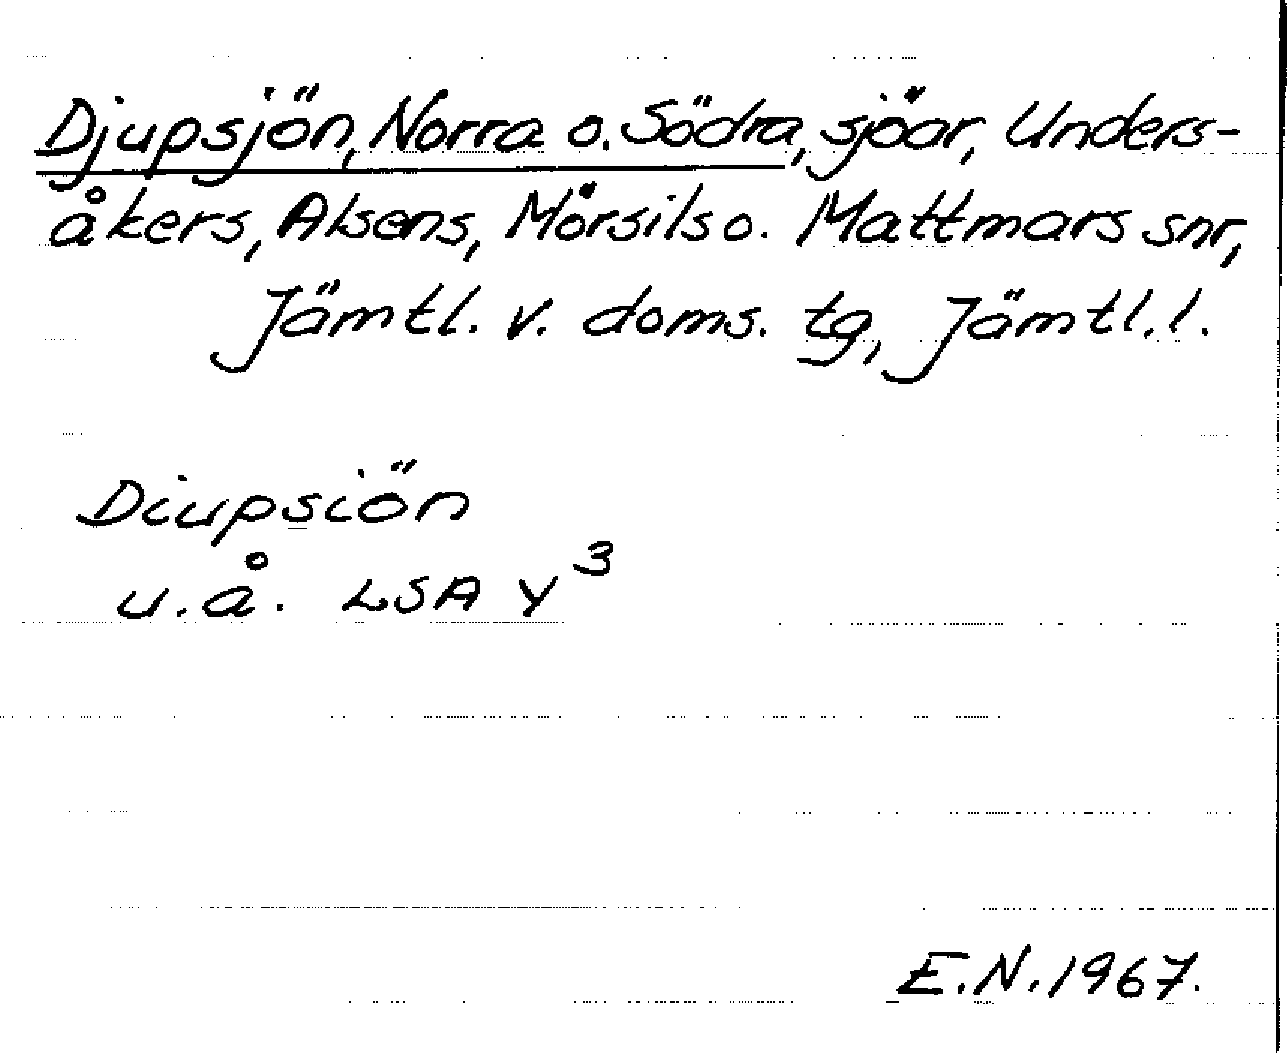 Djupsjön, Norra o. Södra, sjöar, Unders-
åkers, Alsens, Mörsils o. Mattmars snr,
Jämtl. v. doms. tg, Jämtl. l.
Diupsiön
u.å. LSA Y³
E.N. 1967.